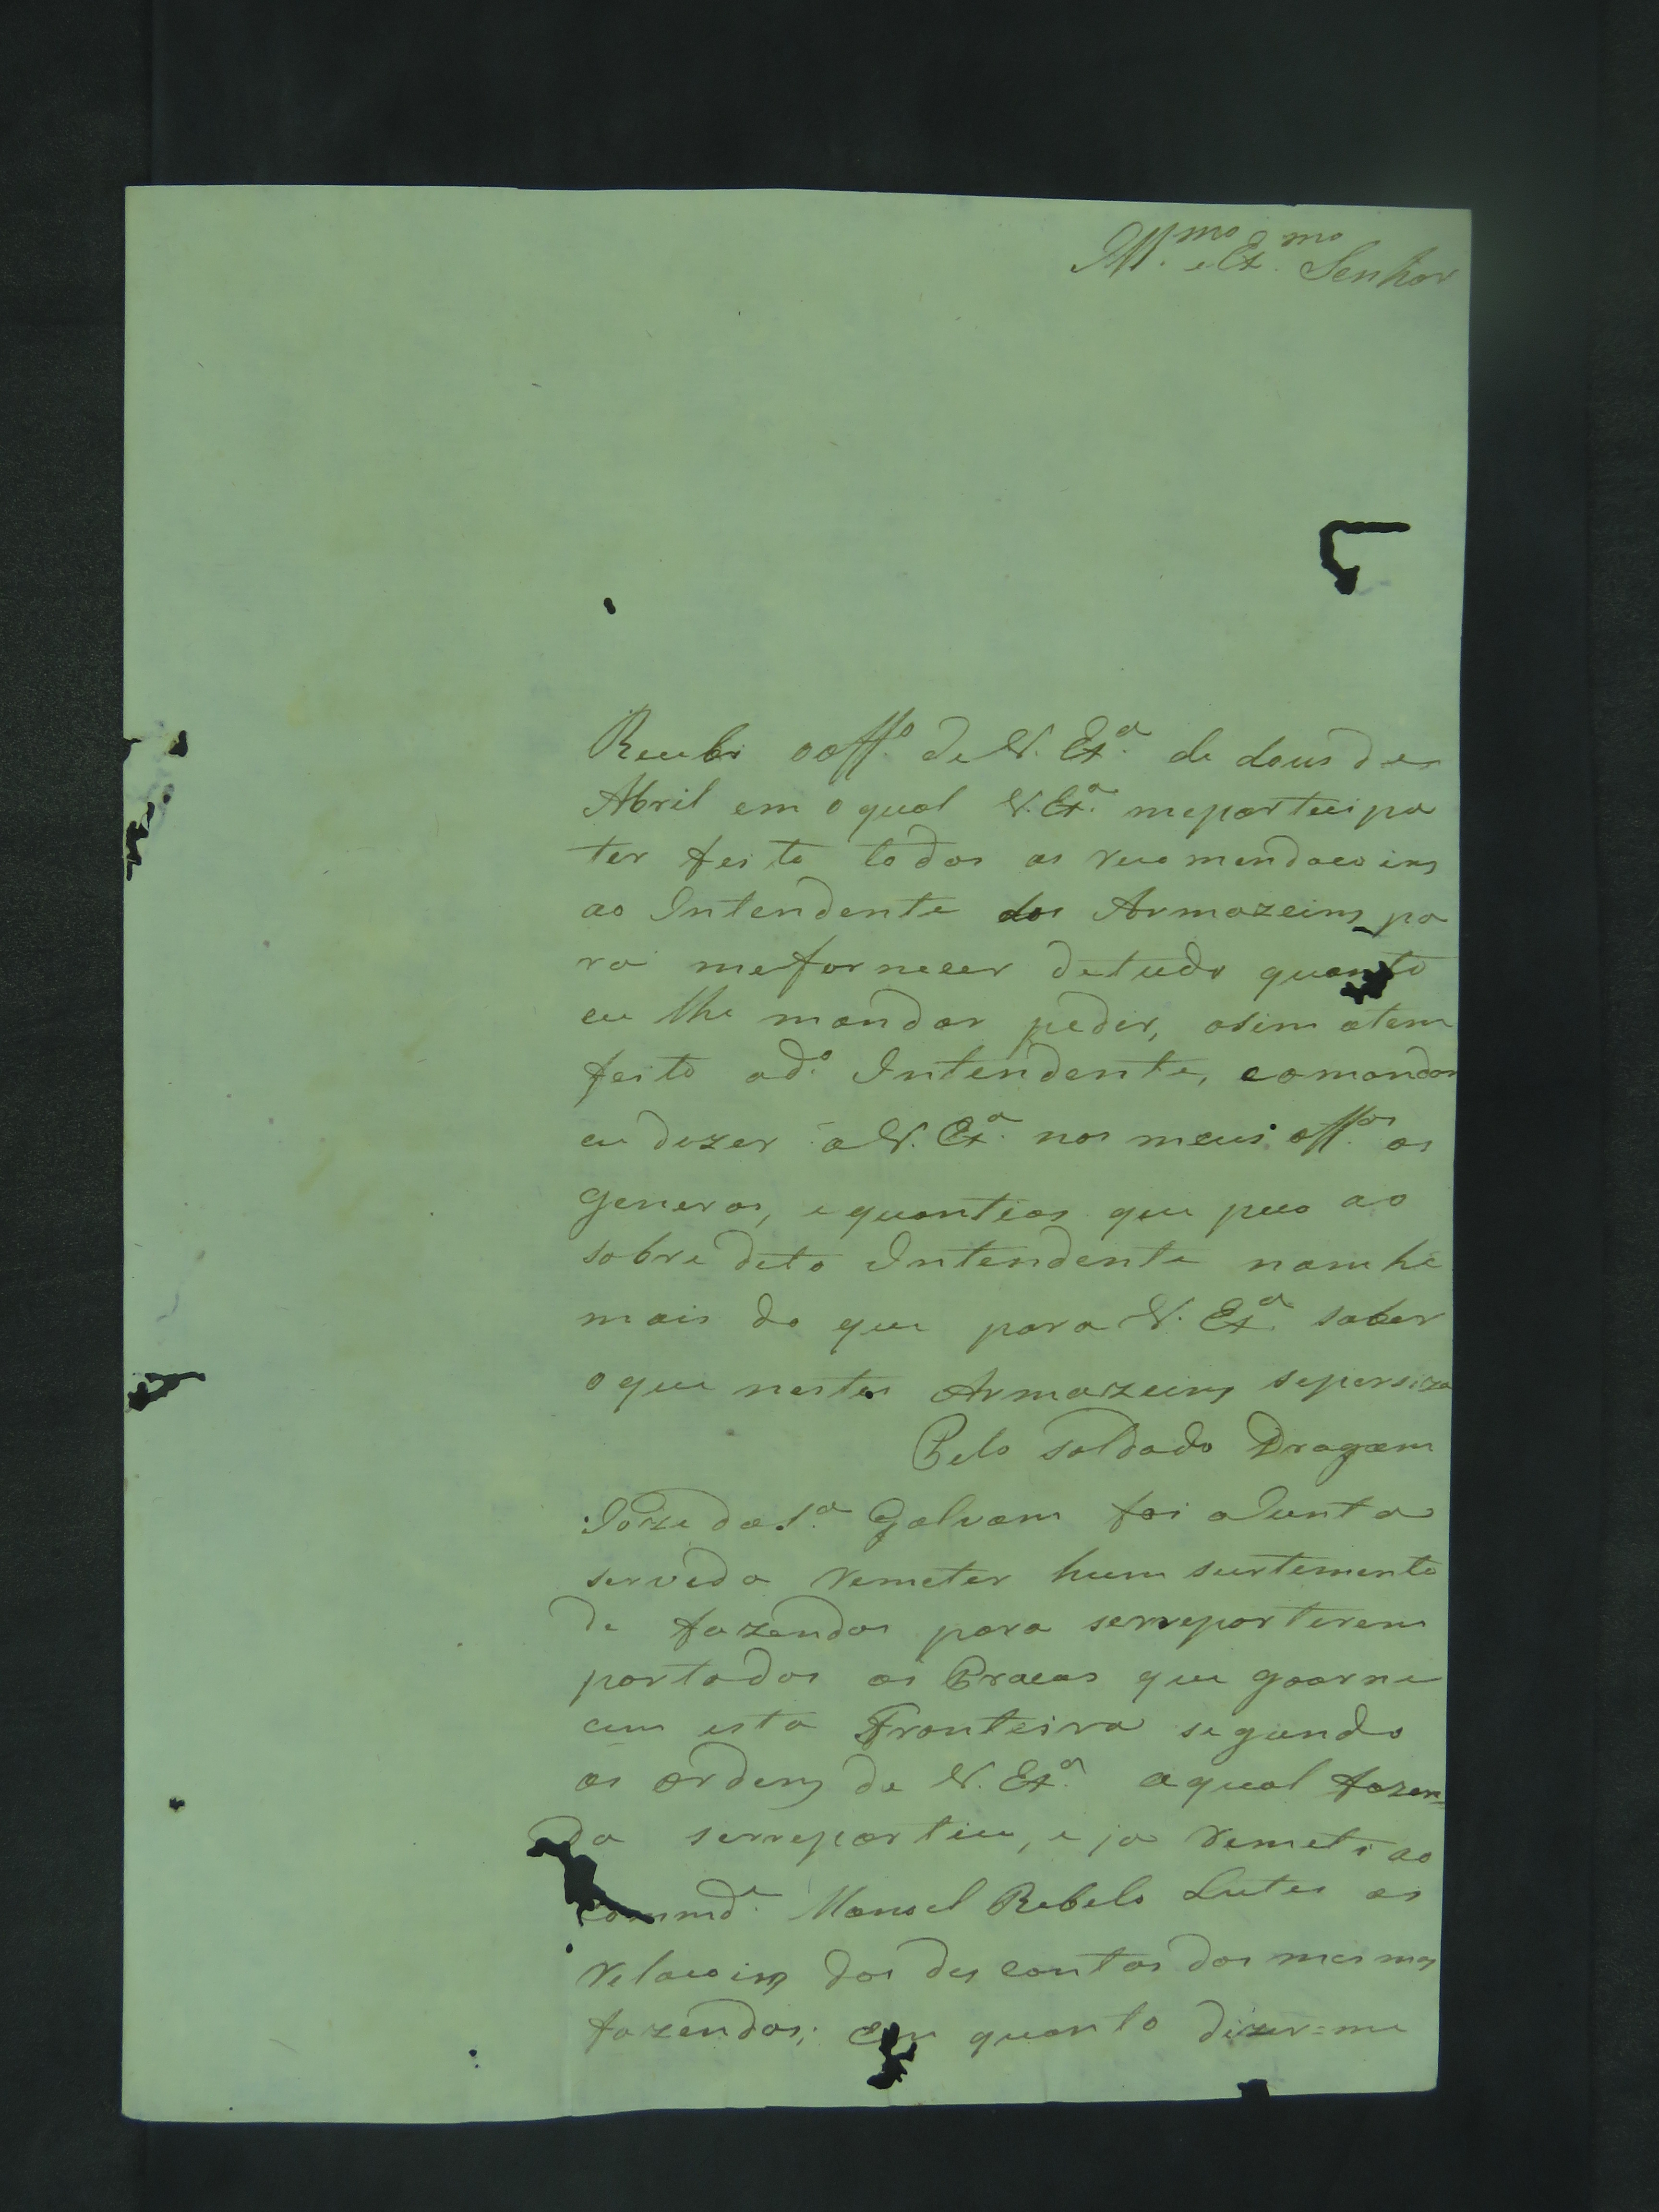 Ill.mo e Ex.mo Senhor
Recebi o off.o de V. Ex.a de dous de
Abril em o qual V. Ex.a me partecipa
ter feito todas as recomendacoins
ao Intendente dos Armazeins pa
ra me fornecer de tudo quanto
eu lhe mandar pedir, asim o tem
feito o d.o Intendente, e o mandar
eu dizer a V. Ex.a nos meus off.os os
generos, e quantias que peco ao
sobre dito Intendente nam he
mais do que para V. Ex.a saber
o que nestes Armazeins se persiza
Pelo soldado Dragam
Joze da S.a Galvam foi a Junta
servida remeter hum surtimento
de fazendas para serrepartirem
por todas as Pracas que goarne
cem esta Fronteira segundo
as ordens de V. Ex.a a qual fazen=
da serrepartiu, e ja remeti ao
Comm.de Manoel Rebelo Leites as
relacoins dos descontos das mesmas
fazendas; em quanto dizer=me